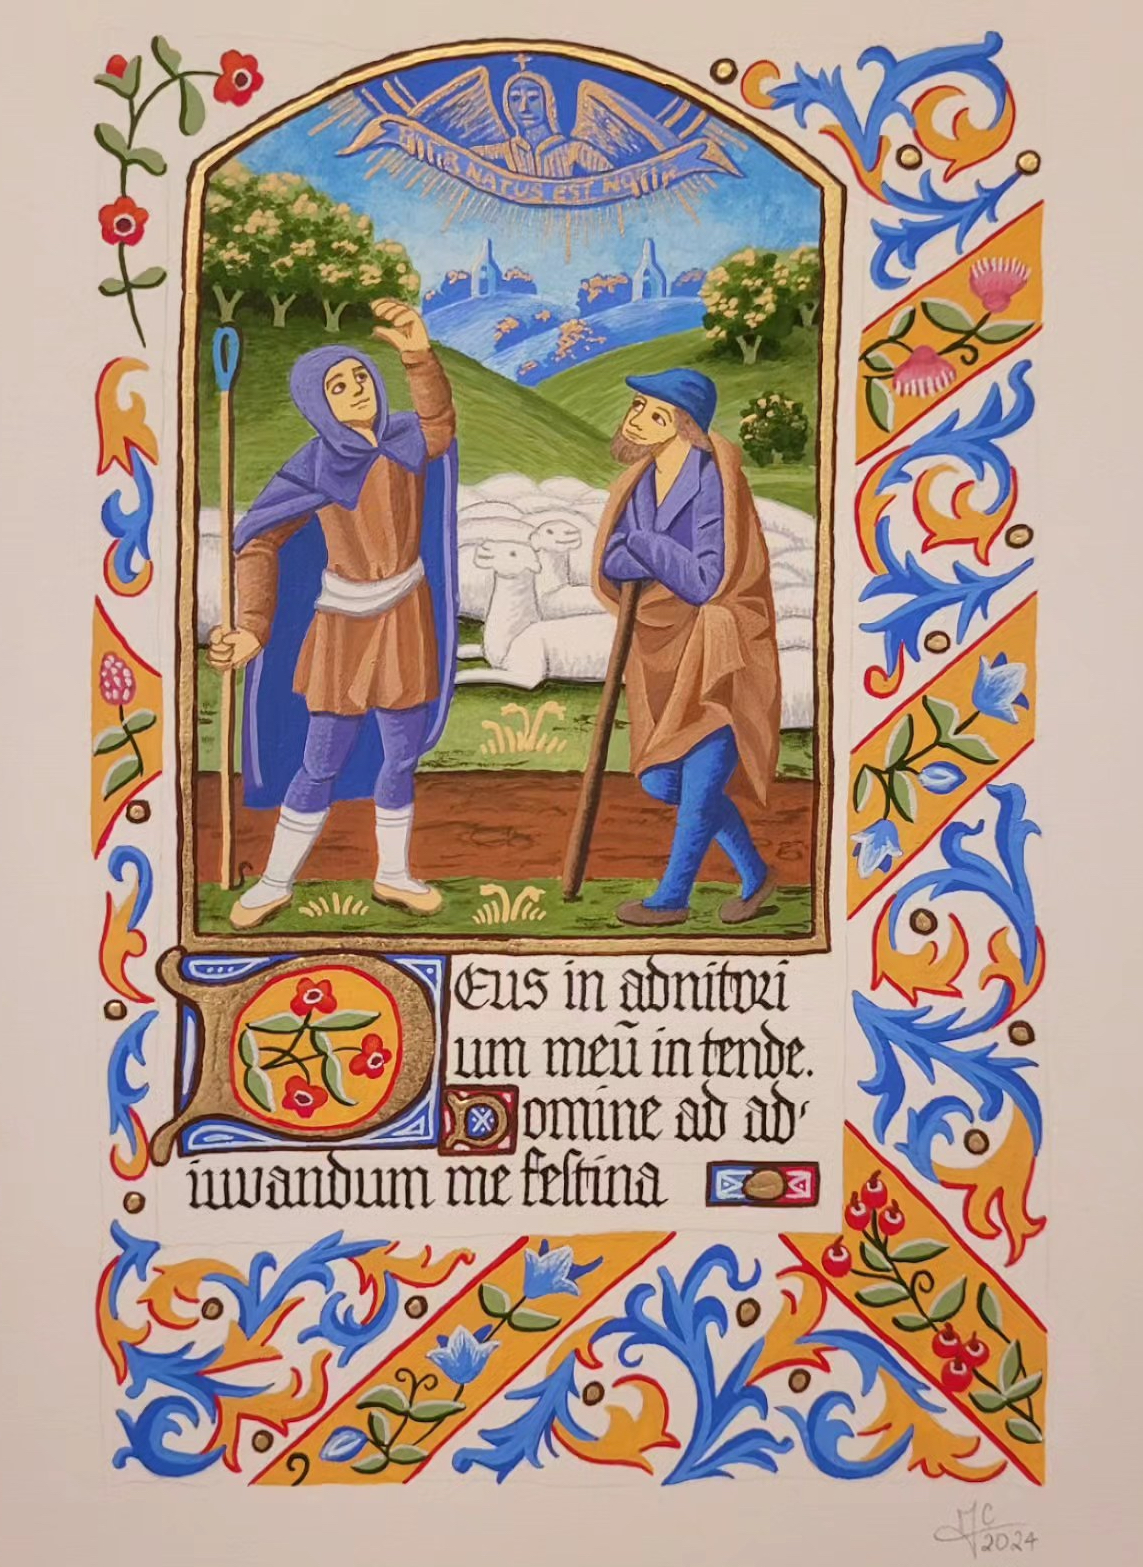 NATUS EST NOBIS
Deus in adnitori
um meū in tende.
Domine ad ad
iuvandum me festina
2024